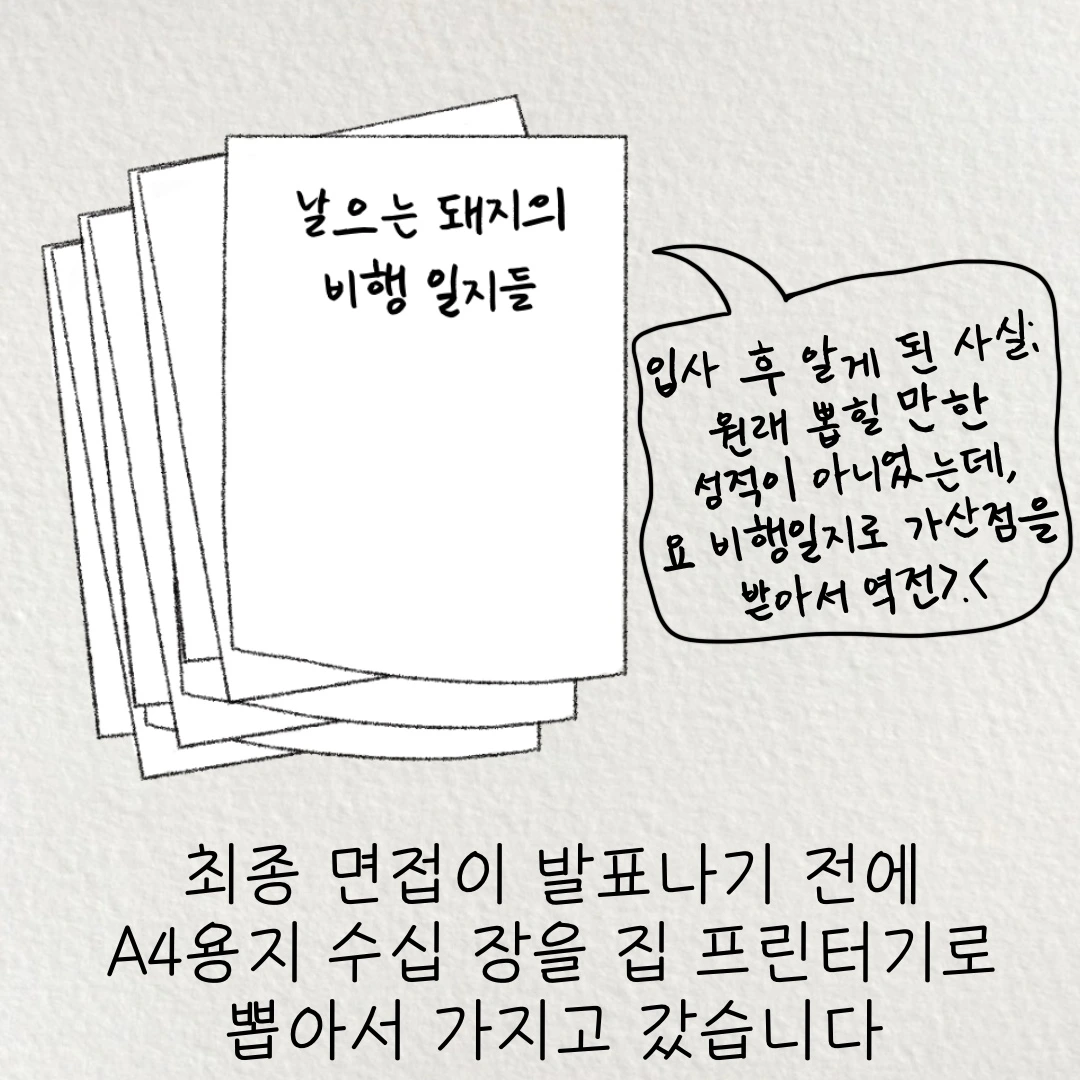 날으는 돼지의
비행 일지들
입사 후 알게 된 사실;
원래 뽑힐 만한
성적이 아니었는데,
요 비행일지로 가산점을
받아서 역전>.<
최종 면접이 발표나기 전에
A4용지 수십 장을 집 프린터기로
뽑아서 가지고 갔습니다